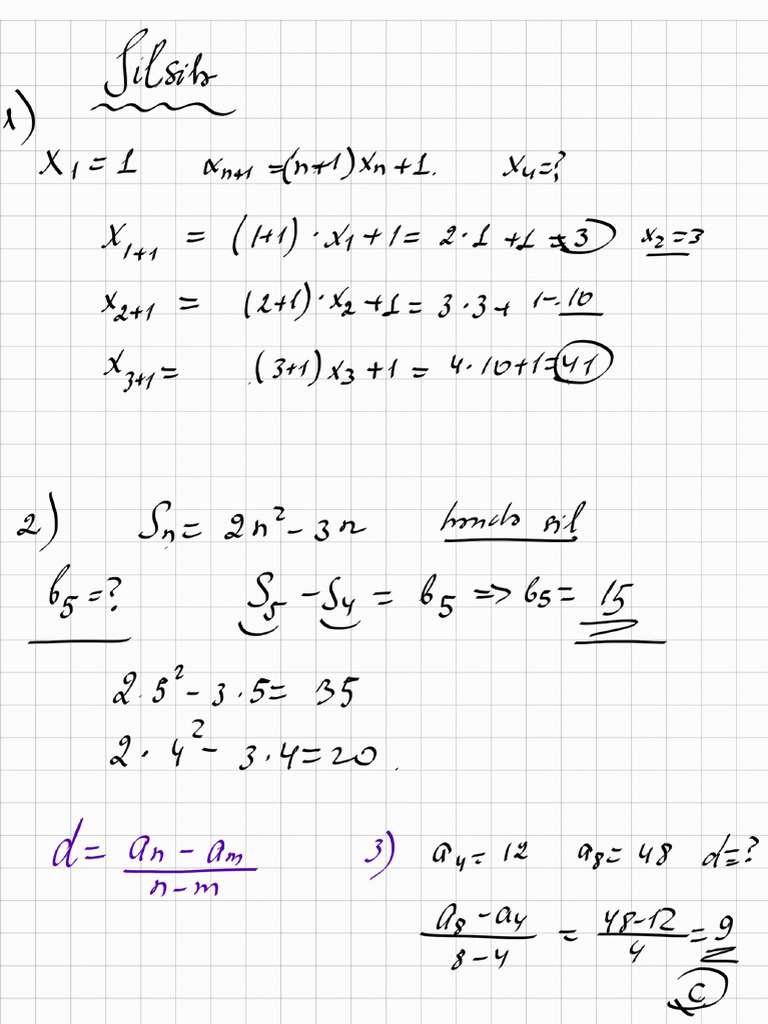 Silsilə
1)
x₁ = 1 xₙ₊₁ = (n+1)xₙ + 1. x₄ = ?
x₁₊₁ = (1+1)·x₁ + 1 = 2·1 + 1 = 3 x₂ = 3
x₂₊₁ = (2+1)·x₂ + 1 = 3·3 + 1 = 10
x₃₊₁ = (3+1)x₃ + 1 = 4·10 + 1 = 41
2) Sₙ = 2n² - 3n sil
b₅ = ? S₅ - S₄ = b₅ => b₅ = 15
2·5² - 3·5 = 35
2·4² - 3·4 = 20.
d = (aₙ - aₘ)/(n - m)
3) a₄ = 12 a₈ = 48 d = ?
(a₈ - a₄)/(8 - 4) = (48 - 12)/4 = 9
C